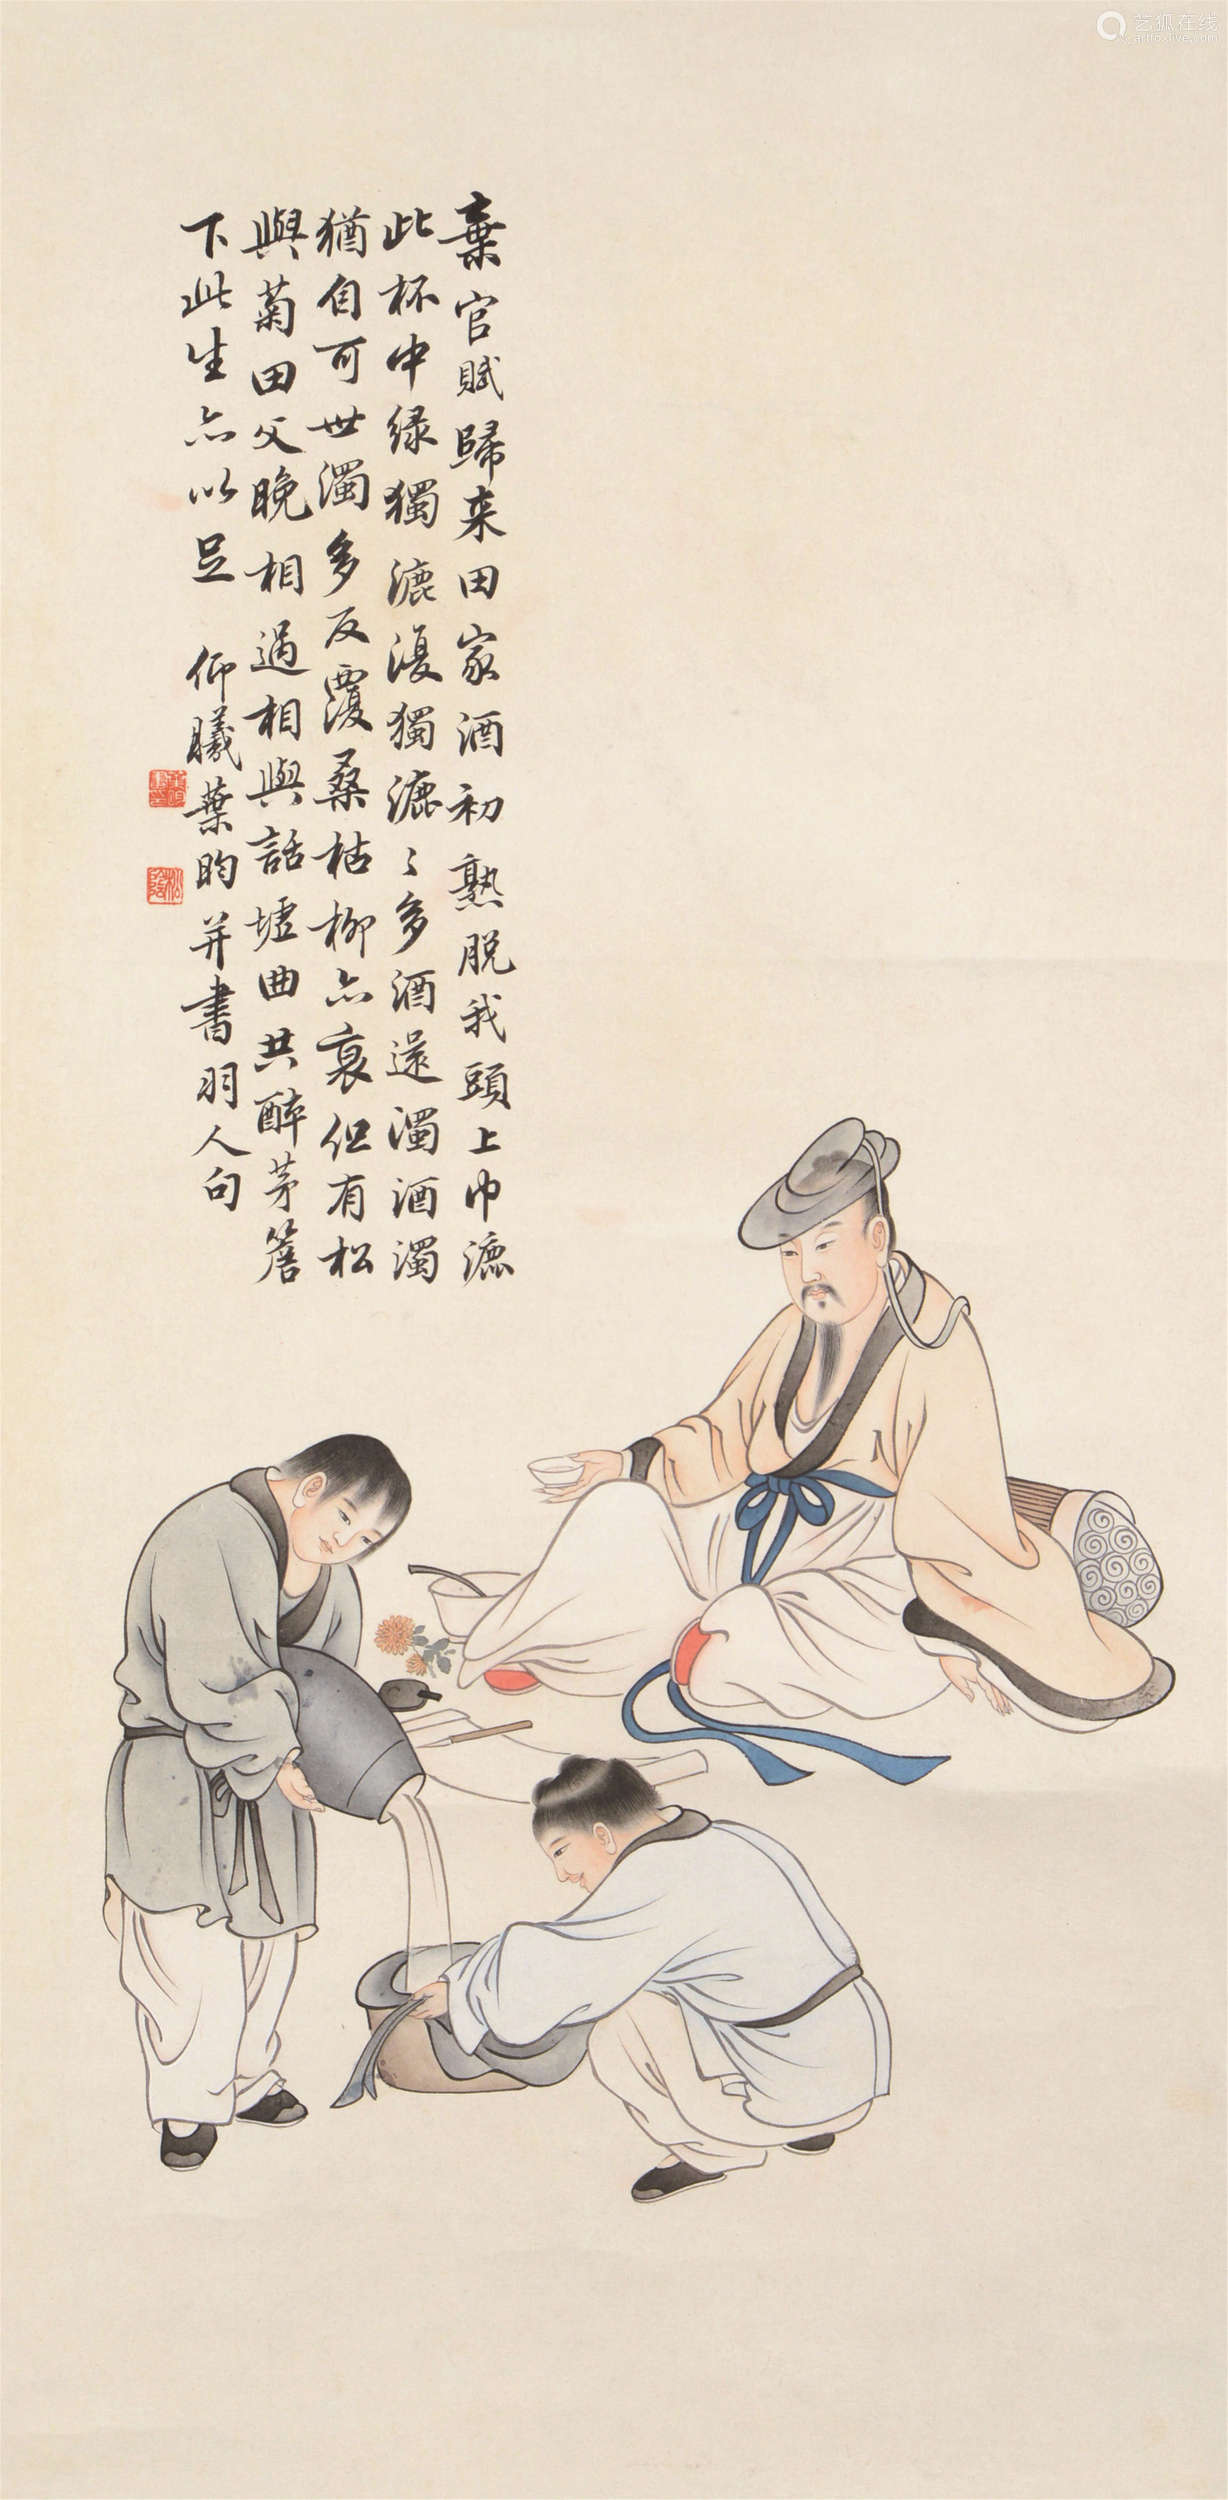 棄官賦歸来田家酒初熟脱我頭上巾漉
此杯中緑獨漉復獨漉〻多酒還濁酒濁
猶自可世濁多反覆桑枯柳亦衰但有松
與菊田父晚相過相與話墟曲共醉茅簷
下此生亦以足 仰曦葉昀并書羽人句
艺狐在线
artfoxlive.com